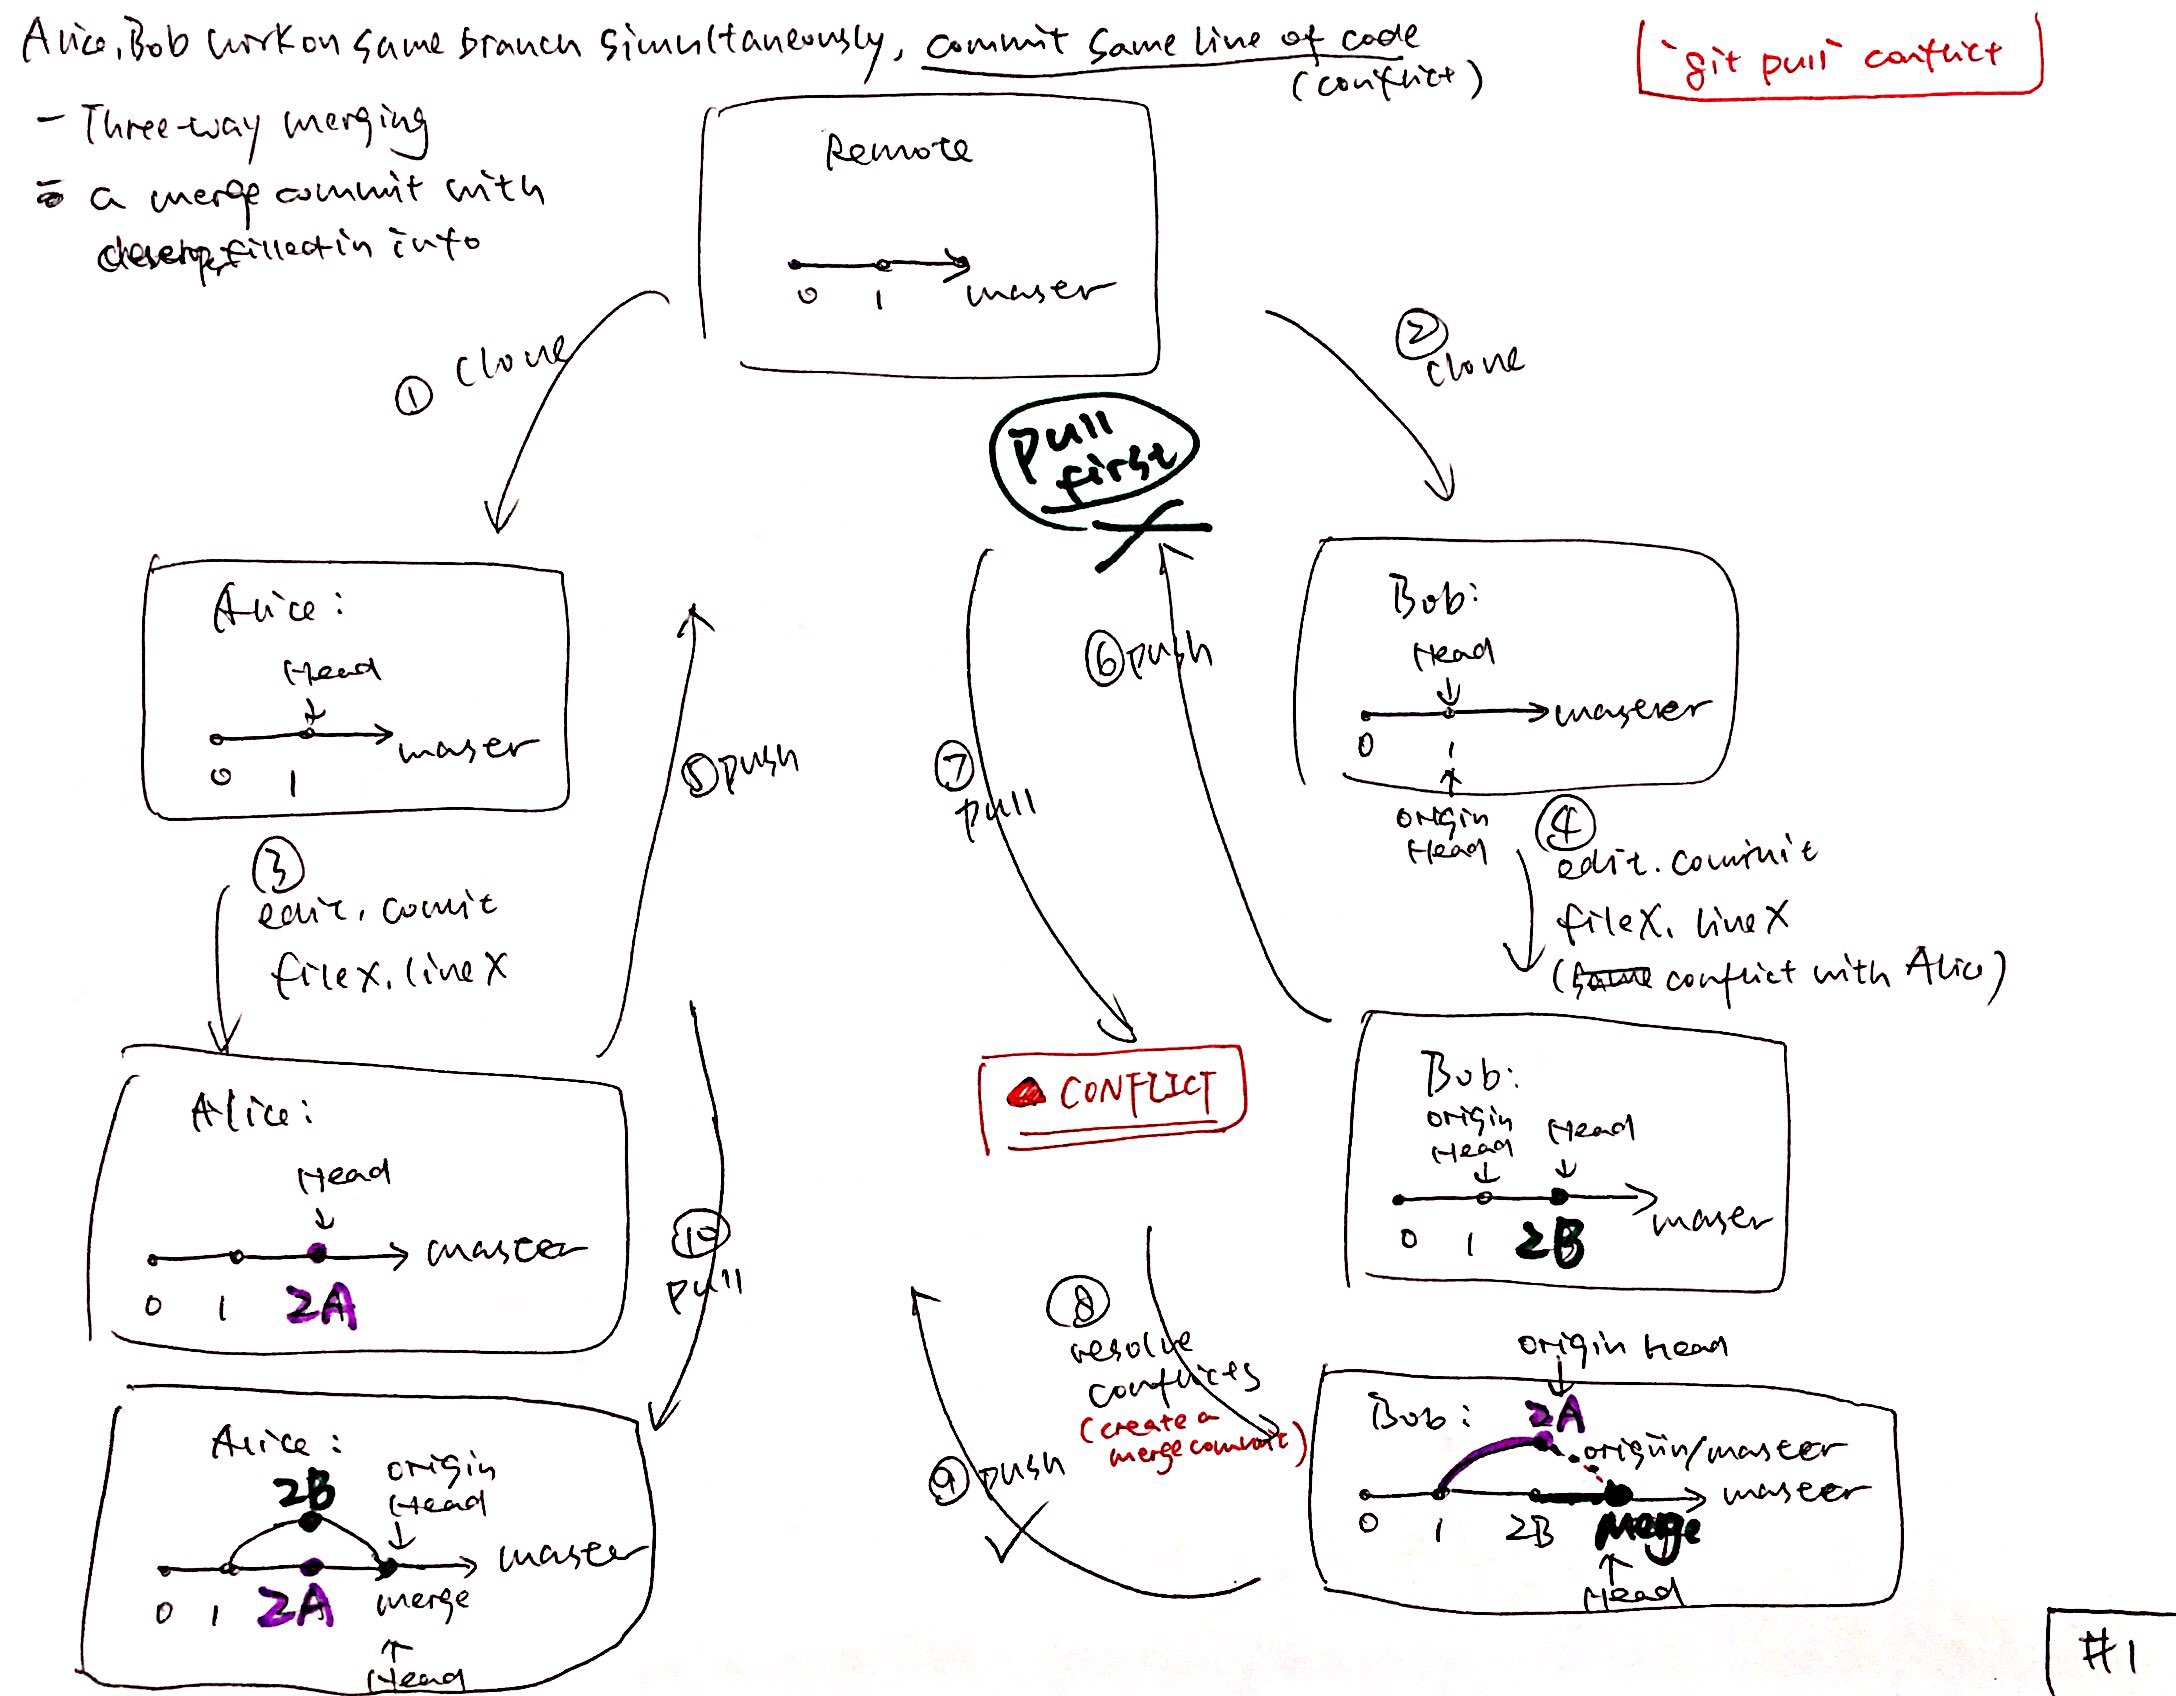 Alice, Bob work on same branch simultaneously, commit same line of code
(conflict)
"git pull" conflict
- Three-way merging
- a merge commit with
filled in info
Remote
0 1 maser
① Clone
② Clone
pull
first
Alice:
Head
maser
0 1
Bob:
Head
master
0 1
origin
Head
③
edit. comit
fileX. lineX
④
edit. commit
fileX. lineX
(same conflict with Alice)
⑤ push
⑥ push
⑦
pull
CONFLICT
Alice:
Head
master
0 1 2A
Bob:
origin
Head
Head
maser
0 1 2B
⑧
resolve
conflicts
(create a
merge commit)
⑨ push
⑩
pull
Alice:
2B
origin
Head
master
0 1 2A merge
Head
origin Head
Bob: 2A
origin/master
master
0 1 2B Merge
Head
#1